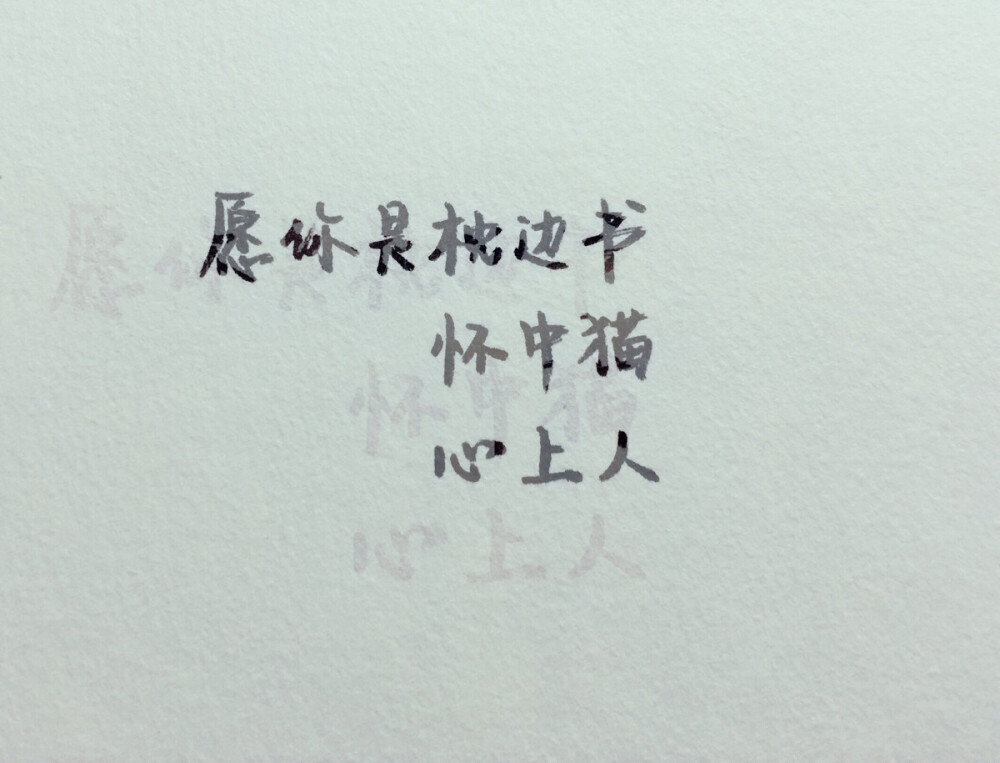 愿你是枕边书
怀中猫
心上人